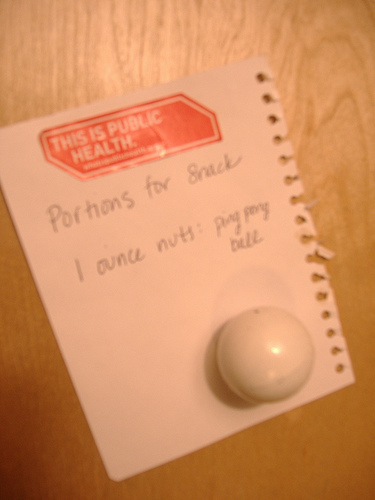 THIS IS PUBLIC
HEALTH.
Portions for Snack
1 ounce nuts: ping pong
ball